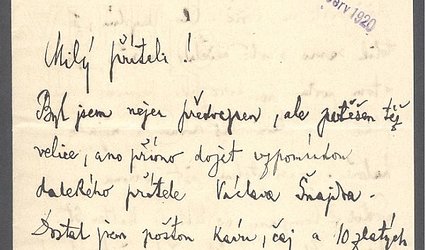 červ 1920
Milý příteli!
Byl jsem nejen překvapen, ale potěšen též
velice, ano přímo dojet vzpomínkou
dalekého přítele Václava Šnajdra.
Dostal jsem poštou kávu, čaj a 10 zlatých